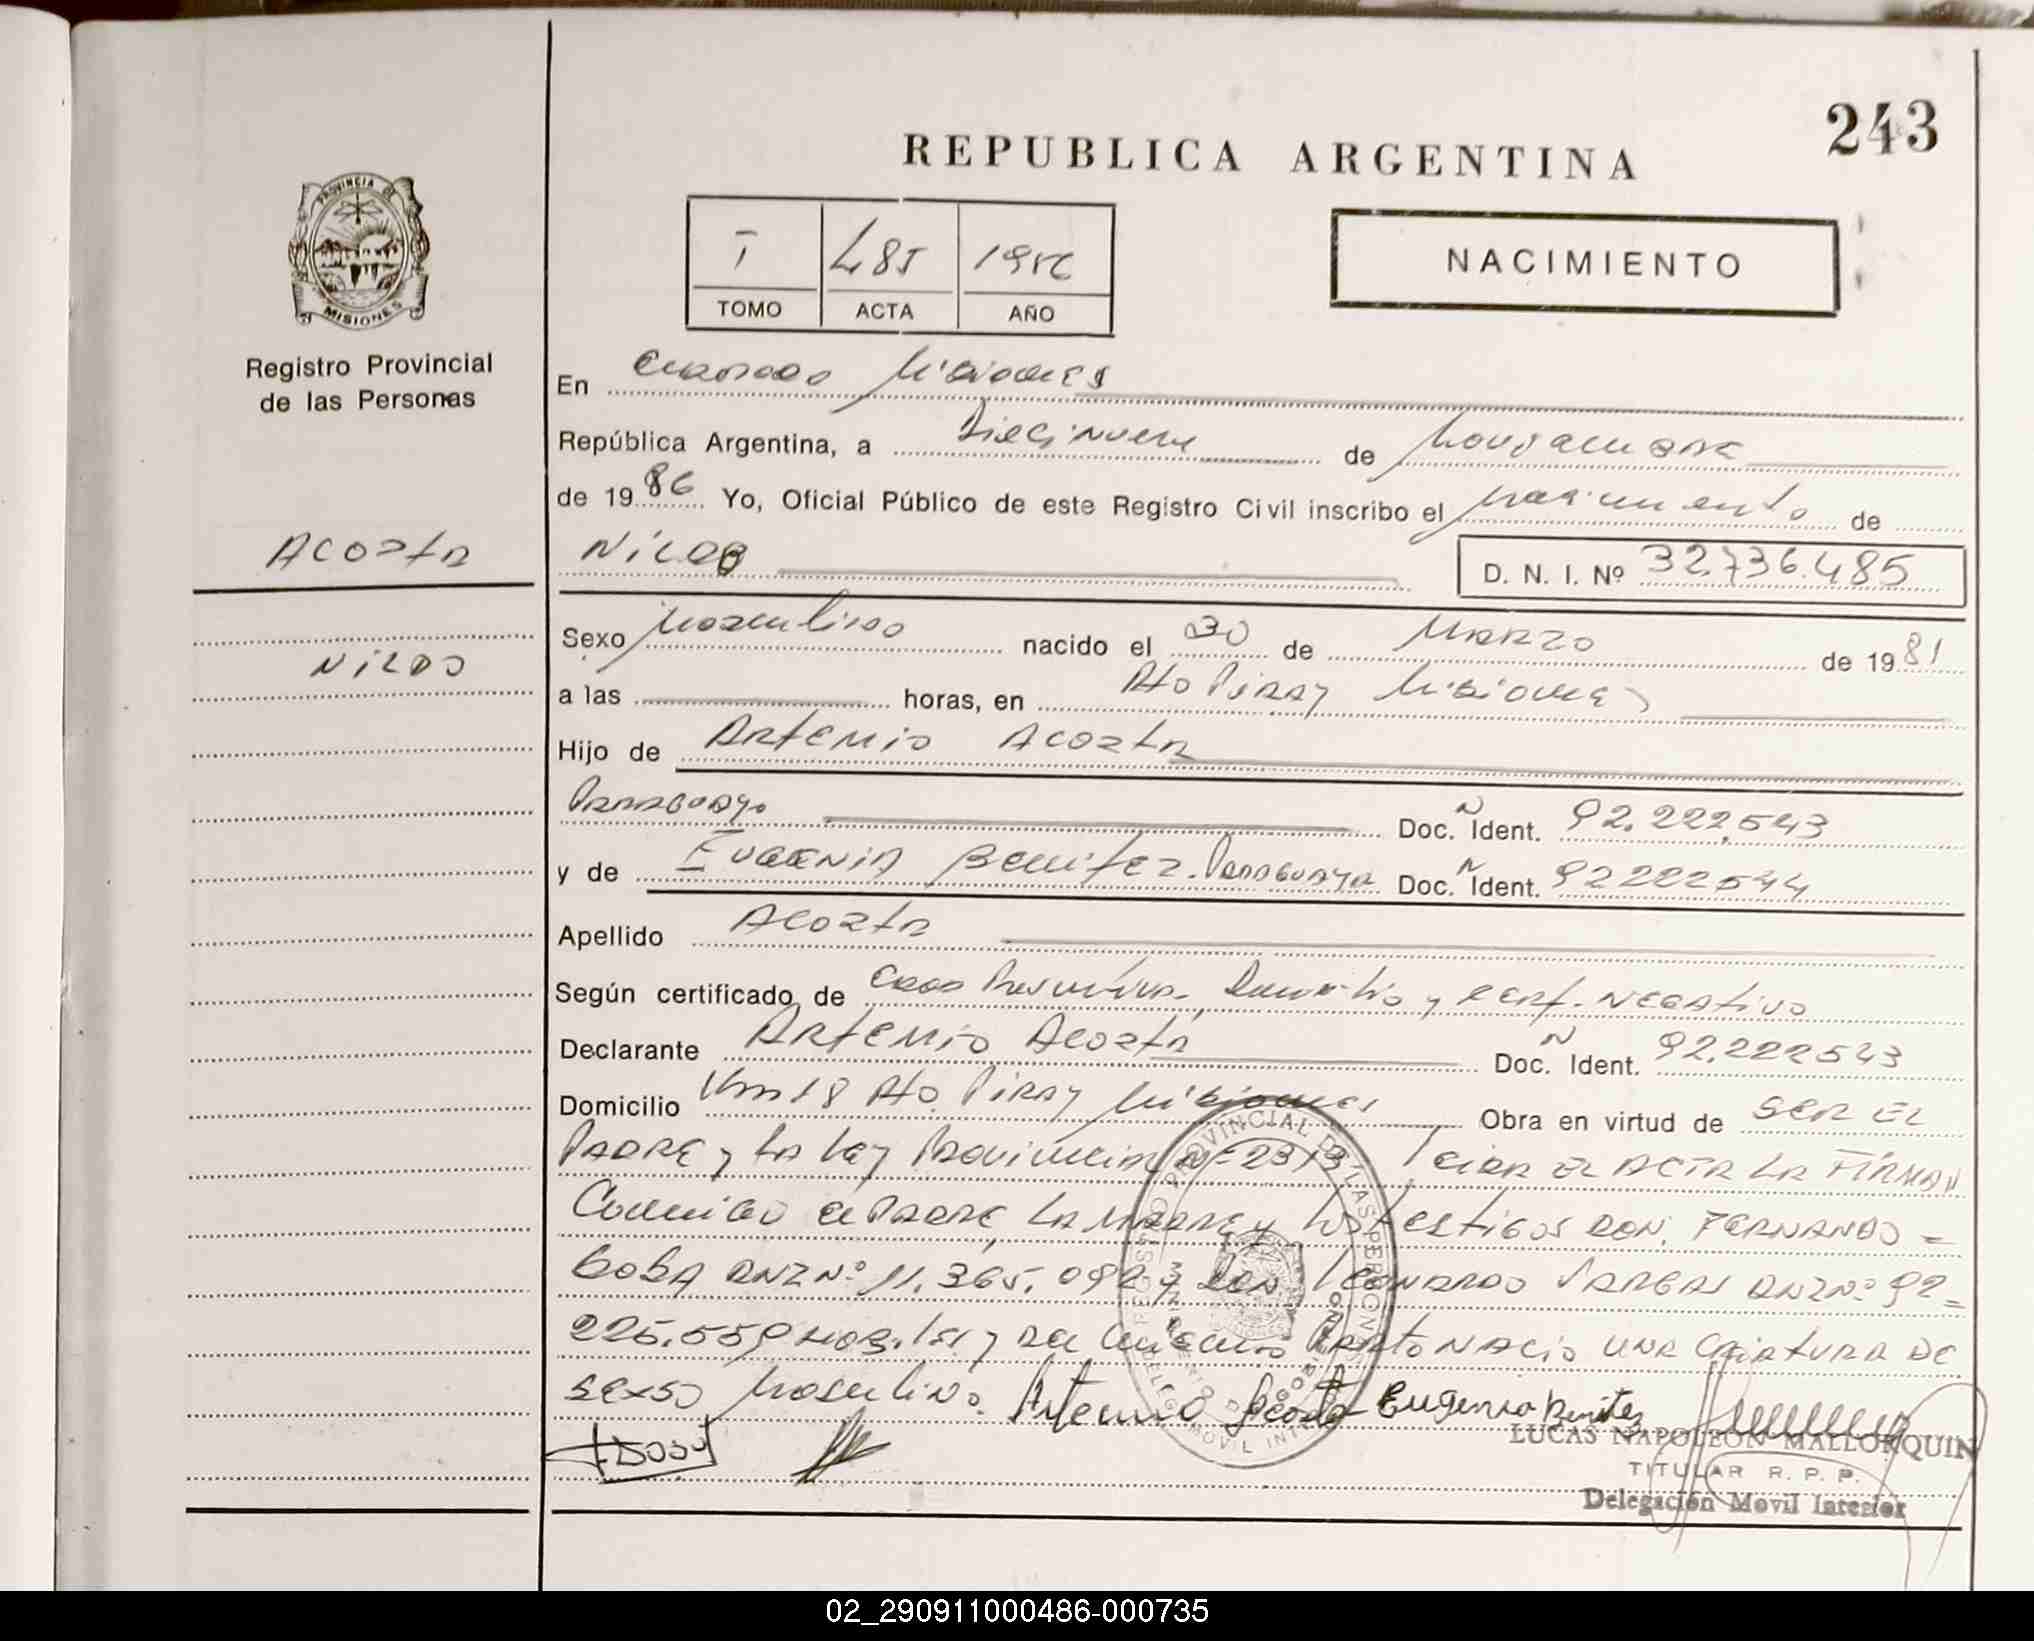 243
REPUBLICA ARGENTINA
PROVINCIA DE
MISIONES
Registro Provincial
de las Personas
I 485 1986
TOMO ACTA AÑO
NACIMIENTO
En Misiones
República Argentina, a Diecinueve de
de 1986 Yo, Oficial Público de este Registro Civil inscribo el nacimiento de
Acosta
Nildo D. N. I. Nº 32.736.485
Sexo Masculino nacido el 30 de Marzo de 1981
Nildo
a las horas, en Pto Piray Misiones
Hijo de Artemio Acosta
Paraguayo Doc. Ident. 92.222.543
y de Eugenia Benitez. Paraguaya Doc. Ident. 92222544
Apellido Acosta
Según certificado de y cert. negativo
Declarante Artemio Acosta Doc. Ident. 92.222543
Domicilio Km 18 Pto. Piray Misiones Obra en virtud de ser el
Padre y la Ley Provincial el acta la firman
Conmigo el Padre, la Madre y los testigos Don, Fernando =
11.365. y Don Leonardo Vargas DNI Nº 92=
225.559 parto nacio una criatura de
sexso Masculino. Artemio Acosta Eugenia Benitez
LUCAS NAPOLEON MALLORQUIN
TITULAR R. P. P.
Delegación Movil Interior
02_290911000486-000735